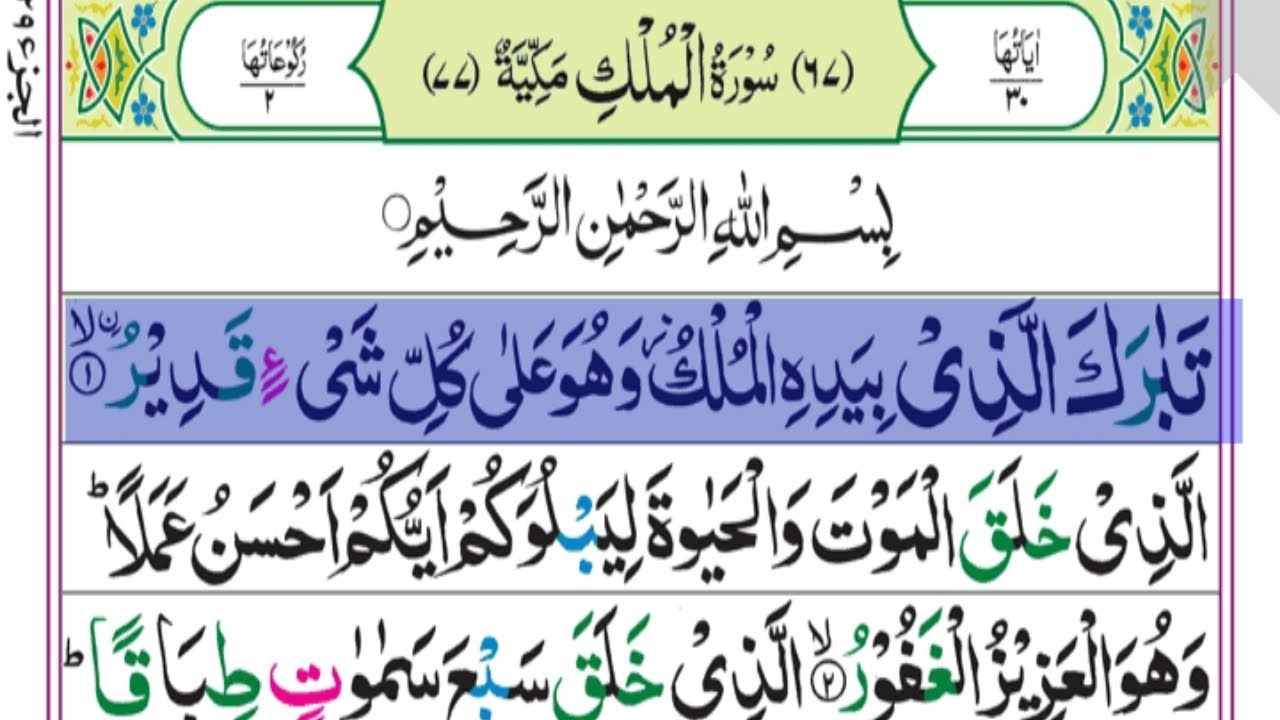 اٰيَاتُهَا ٣٠
(٦٧) سُوْرَةُ الْمُلْكِ مَكِّيَّةٌ (٧٧)
رُكُوْعَاتُهَا ٢
بِسْمِ اللهِ الرَّحْمٰنِ الرَّحِيْمِ ○
تَبٰرَكَ الَّذِىْ بِيَدِهِ الْمُلْكُ ؗ وَهُوَ عَلٰى كُلِّ شَىْءٍ قَدِيْرُ ۨ ۙ ١
الَّذِىْ خَلَقَ الْمَوْتَ وَالْحَيٰوةَ لِيَبْلُوَكُمْ اَيُّكُمْ اَحْسَنُ عَمَلًا ؕ
وَهُوَ الْعَزِيْزُ الْغَفُوْرُ ۙ ٢ الَّذِىْ خَلَقَ سَبْعَ سَمٰوٰتٍ طِبَاقًا ؕ